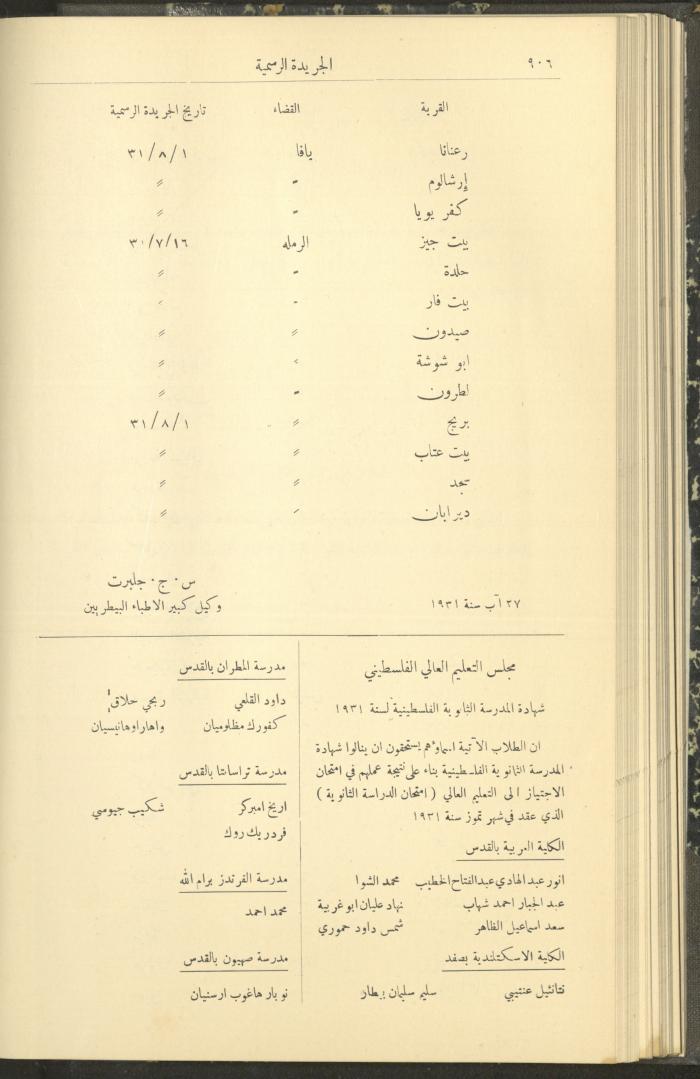 ٩٠٦ الجريدة الرسمية
القرية القضاء تاريخ الجريدة الرسمية
رعنانا يافا ٣١/٨/١
إرشالوم = =
كفر يوبا = =
بيت جيز الرمله ٣٠/٧/١٦
خلدة = =
بيت فار = =
صيدون = =
ابو شوشة = =
لطرون = =
بريج = ٣١/٨/١
بيت عتاب = =
سجد = =
دير ابان = =
س . ج . جلبرت
٢٧ آب سنة ١٩٣١ وكيل كبير الاطباء البيطريين
مجلس التعليم العالي الفلسطيني
شهادة المدرسة الثانوية الفلسطينية لسنة ١٩٣١
ان الطلاب الآتية اسماؤهم يستحقون ان ينالوا شهادة
المدرسة الثانوية الفلسطينية بناء على نتيجة عملهم في امتحان
الاجتياز الى التعليم العالي ( امتحان الدراسة الثانوية )
الذي عقد في شهر تموز سنة ١٩٣١
الكلية العربية بالقدس
انور عبد الهادي عبد الفتاح الخطيب محمد الشوا
عبد الجبار احمد شهاب نهاد عليان ابو غربية
سعد اسماعيل الظاهر شمس داود حموري
الكلية الاسكتلندية بصفد
نتانئيل عنتيبي سليم سليمان بيطار
مدرسة المطران بالقدس
داود القلعي ربحي حلاق
كفورك مظلوميان واهاراوهانيسيان
مدرسة تراسانتا بالقدس
اريخ امبركر شكيب جيوسي
فردريك روك
مدرسة الفرندز برام الله
محمد احمد
مدرسة صهيون بالقدس
نوبار هاغوب ارسنيان